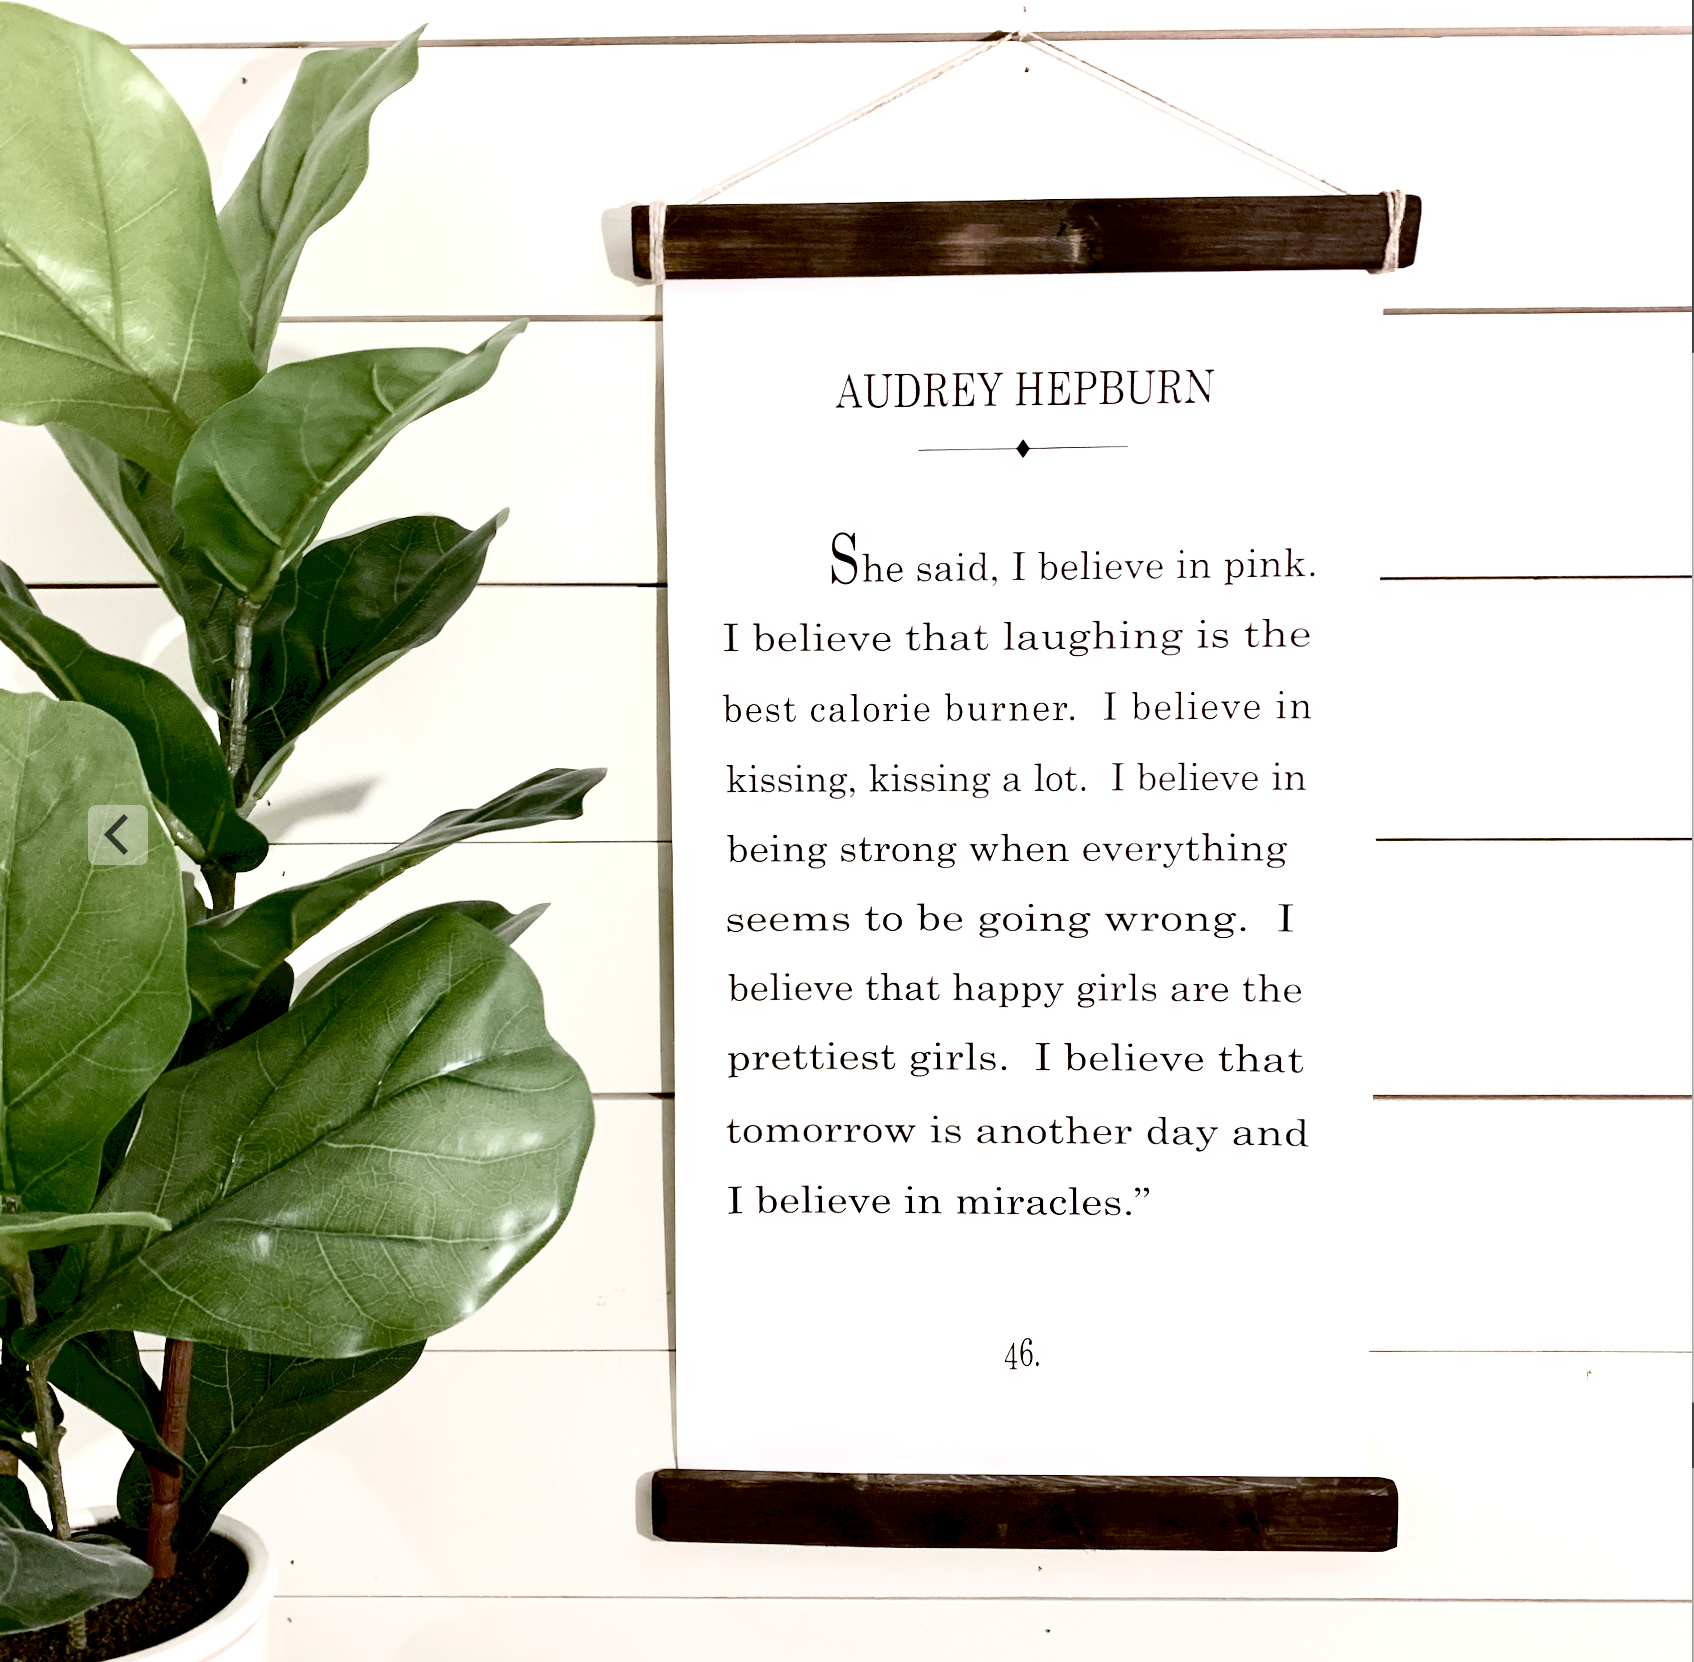 AUDREY HEPBURN
She said, I believe in pink.
I believe that laughing is the
best calorie burner.  I believe in
kissing, kissing a lot.  I believe in
being strong when everything
seems to be going wrong.  I
believe that happy girls are the
prettiest girls.  I believe that
tomorrow is another day and
I believe in miracles.”
46.